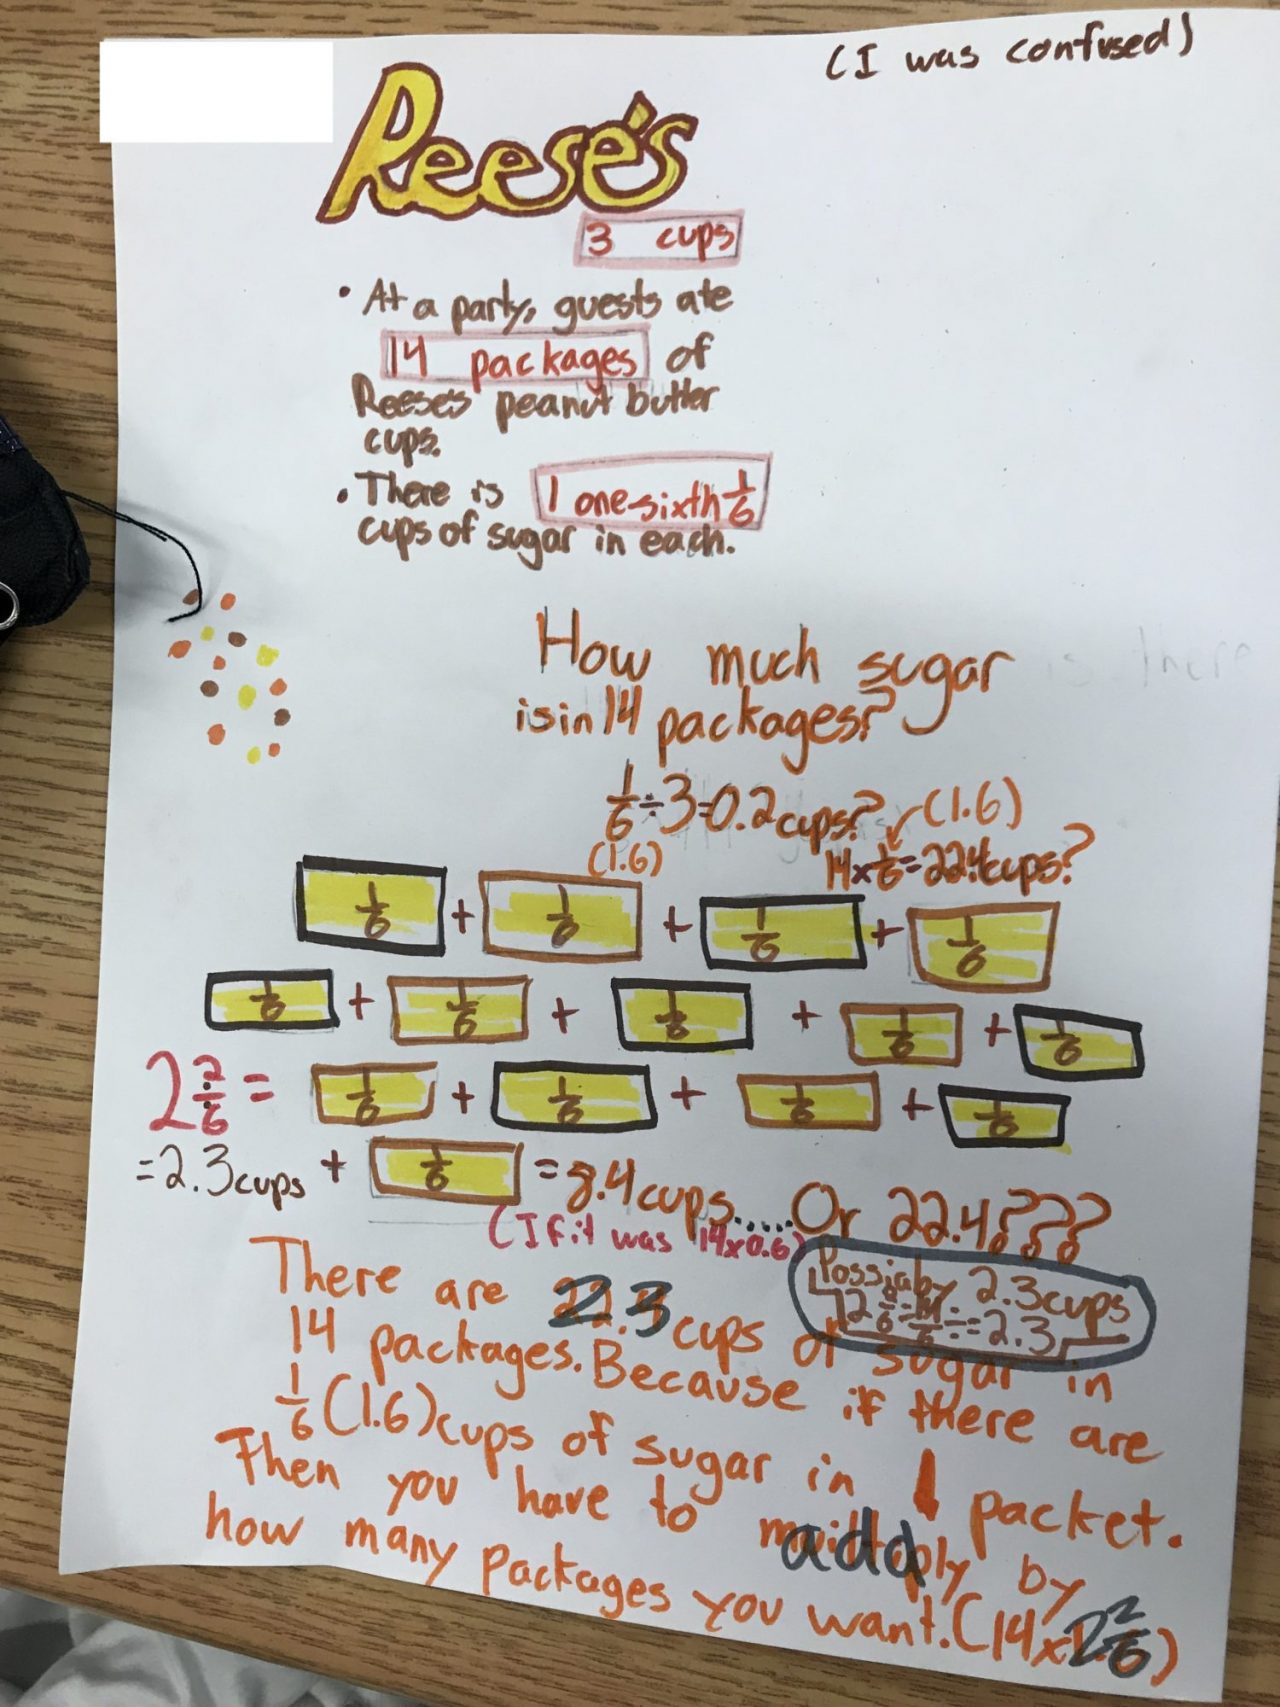 (I was confused)
Reese's
3 cups
• At a party, guests ate
14 packages of
Reese's peanut butter
cups.
• There is 1 one-sixth 1/6
cups of sugar in each.
How much sugar
is in 14 packages?
is there
1/6 ÷ 3 = 0.2 cups? (1.6)
(1.6) 14 x 1/6 = 22.4 cups?
1/6 + 1/6 + 1/6 + 1/6
1/6 + 1/6 + 1/6 + 1/6 + 1/6
2 2/6 = 1/6 + 1/6 + 1/6 + 1/6
= 2.3 cups + 1/6 = 8.4 cups.....Or 22.4???
(If it was 14x0.6)
Possiaby 2.3 cups
= 2.3
There are 2.3 cups of sugar in
14 packages. Because if there are
1/6 (1.6) cups of sugar in 1 packet.
Then you have to add by
how many packages you want. (14x2 2/6)